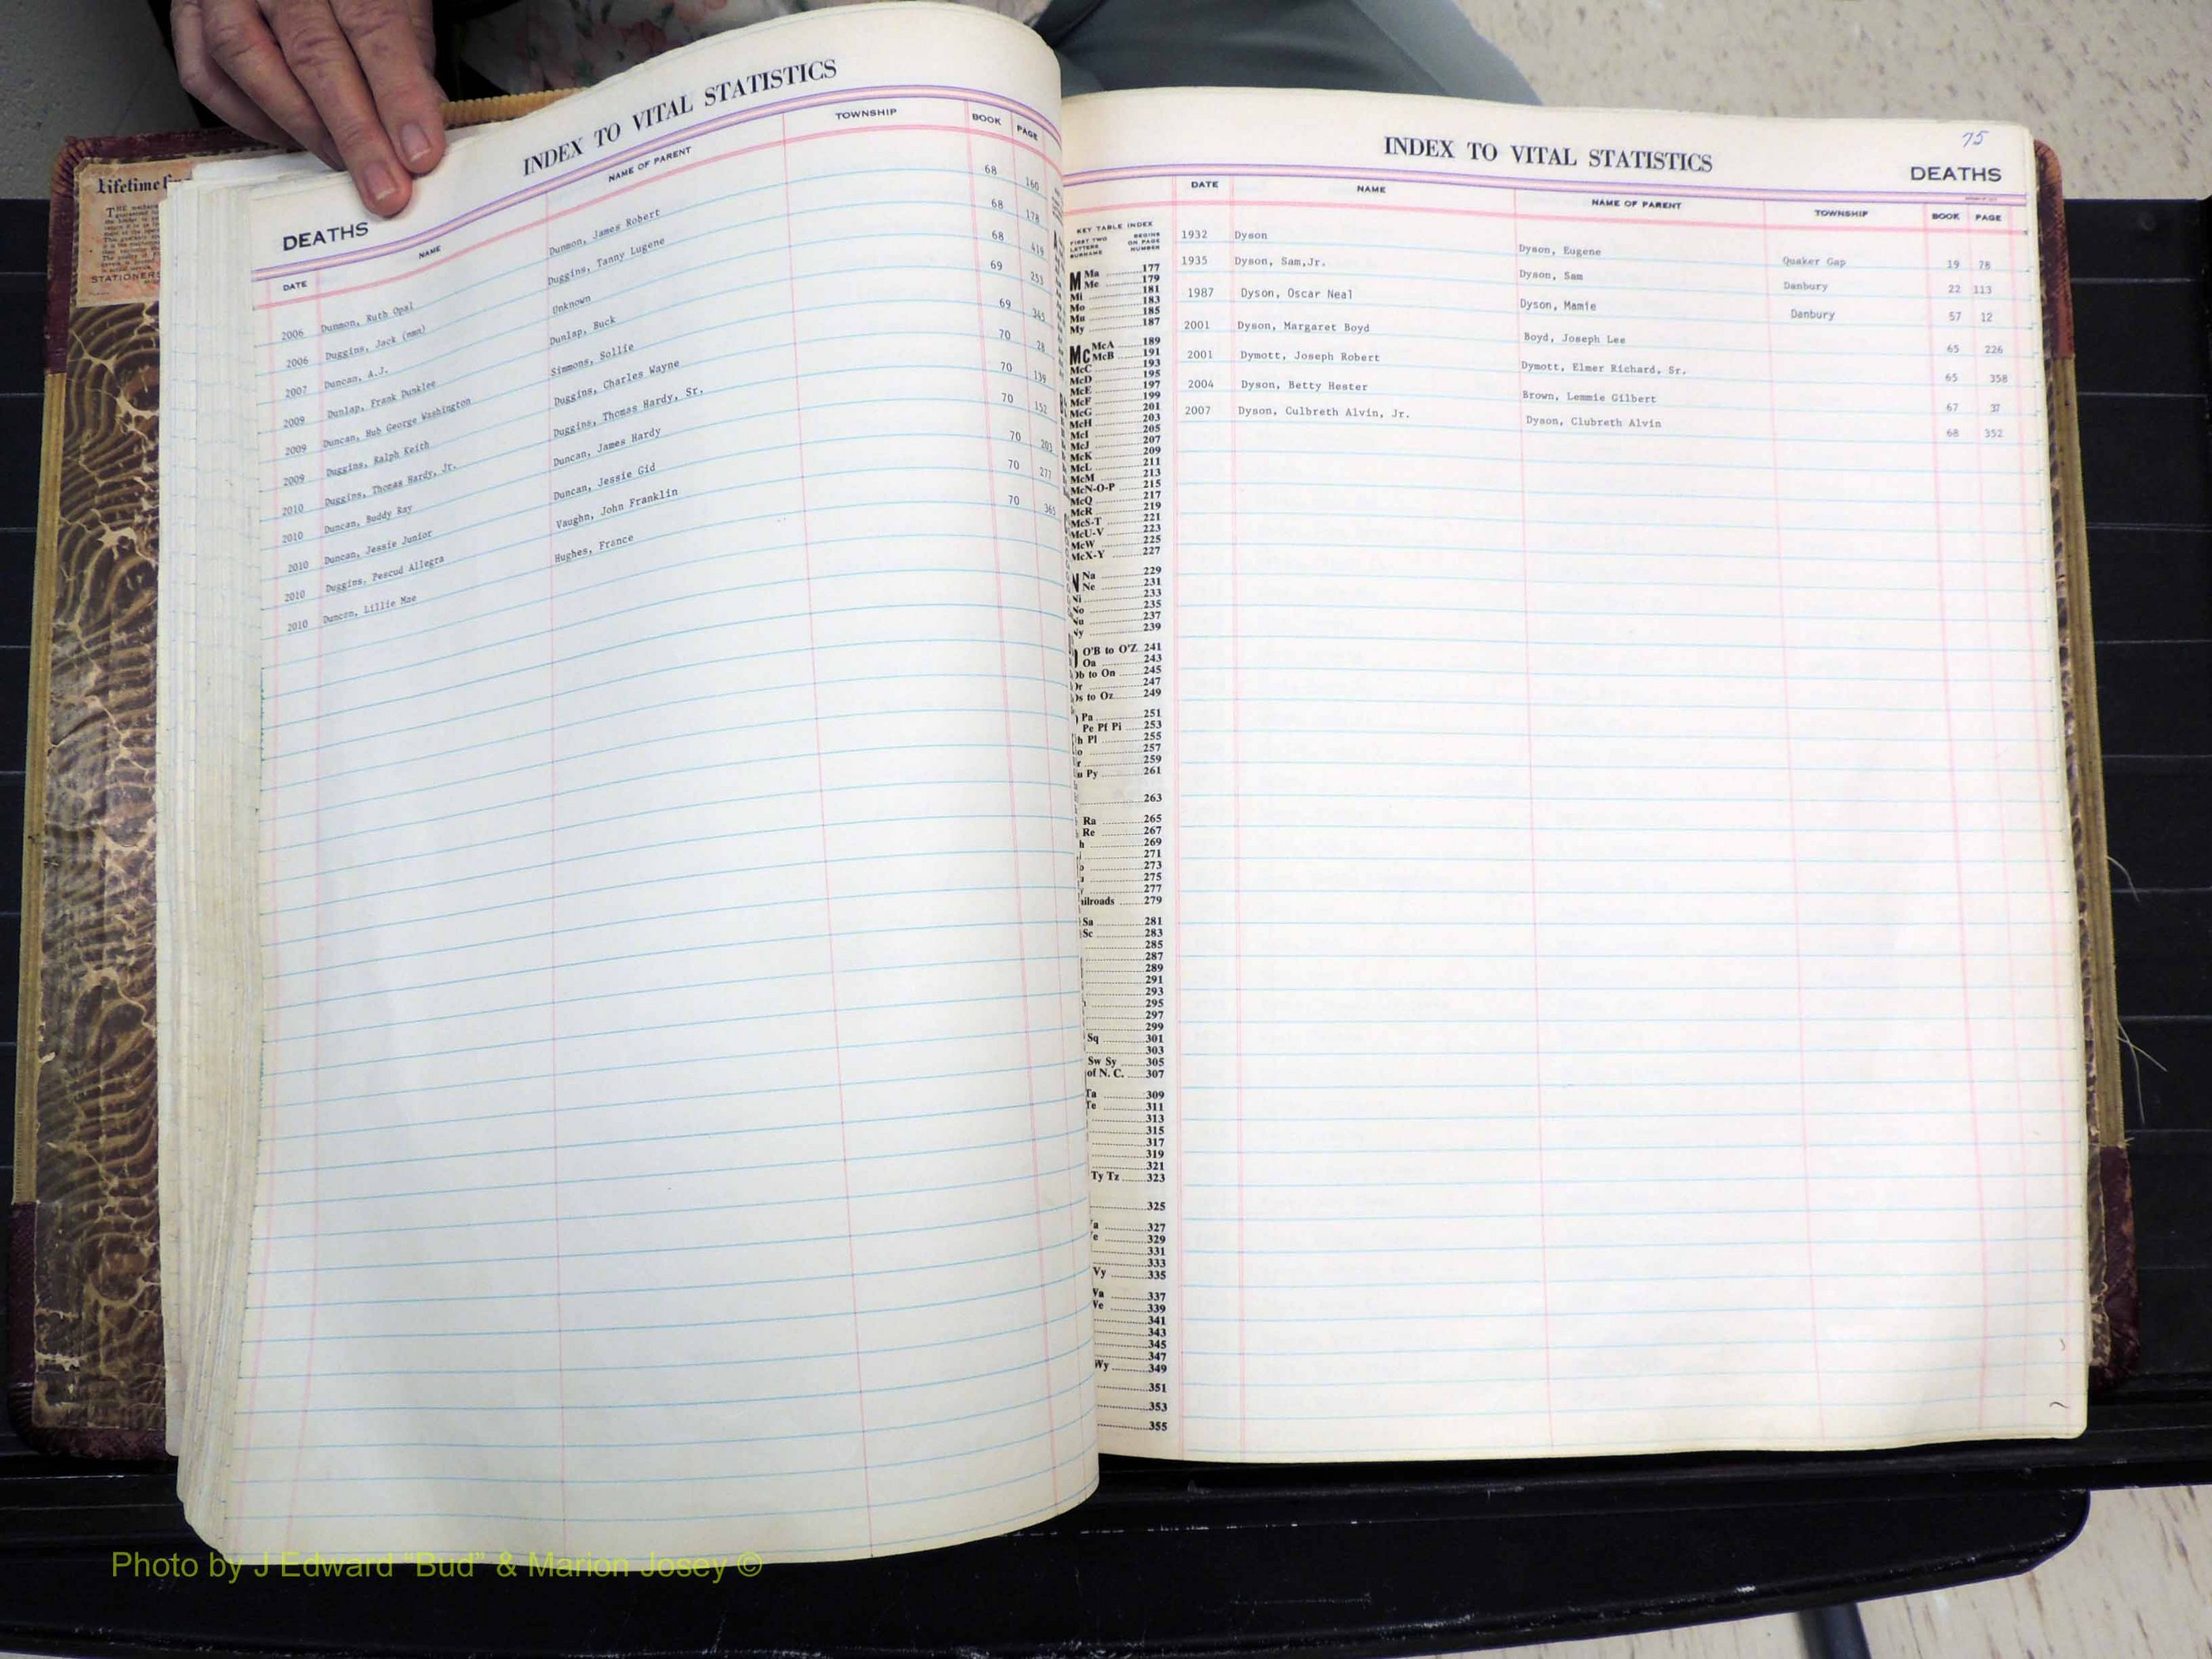 Lifetime
STATIONERS
INDEX TO VITAL STATISTICS
DEATHS
DATE NAME NAME OF PARENT TOWNSHIP BOOK PAGE
2006 Dunmon, Ruth Opal Dunmon, James Robert 68 160
2006 Duggins, Jack (nmn) Duggins, Tanny Lugene 68 178
2007 Duncan, A.J. Unknown 68 419
2009 Dunlap, Frank Dunklee Dunlap, Buck 69 253
2009 Duncan, Hub George Washington Simmons, Sollie 69 345
2009 Duggins, Ralph Keith Duggins, Charles Wayne 70 28
2010 Duggins, Thomas Hardy, Jr. Duggins, Thomas Hardy, Sr. 70 139
2010 Duncan, Buddy Ray Duncan, James Hardy 70 152
2010 Duncan, Jessie Junior Duncan, Jessie Gid 70 203
2010 Duggins, Pescud Allegra Vaughn, John Franklin 70 277
2010 Duncan, Lillie Mae Hughes, France 70 365
75
INDEX TO VITAL STATISTICS
DEATHS
DATE NAME NAME OF PARENT TOWNSHIP BOOK PAGE
1932 Dyson Dyson, Eugene Quaker Gap 19 78
1935 Dyson, Sam,Jr. Dyson, Sam Danbury 22 113
1987 Dyson, Oscar Neal Dyson, Mamie Danbury 57 12
2001 Dyson, Margaret Boyd Boyd, Joseph Lee 65 226
2001 Dymott, Joseph Robert Dymott, Elmer Richard, Sr. 65 358
2004 Dyson, Betty Hester Brown, Lemmie Gilbert 67 37
2007 Dyson, Culbreth Alvin, Jr. Dyson, Clubreth Alvin 68 352
KEY TABLE INDEX
FIRST TWO LETTERS SURNAME BEGINS ON PAGE NUMBER
M Ma 177
Me 179
Mi 181
Mo 183
Mu 185
My 187
Mc McA 189
McB 191
McC 193
McD 195
McE 197
McF 199
McG 201
McH 203
McI 205
McJ 207
McK 209
McL 211
McM 213
McN-O-P 215
McQ 217
McR 219
McS-T 221
McU-V 223
McW 225
McX-Y 227
N Na 229
Ne 231
Ni 233
No 235
Nu 237
Ny 239
O'B to O'Z 241
Oa 243
Ob to On 245
Or 247
Os to Oz 249
Pa 251
Pe Pf Pi 253
h Pl 255
o 257
r 259
u Py 261
263
Ra 265
Re 267
h 269
271
o 273
275
277
ailroads 279
Sa 281
Sc 283
285
287
289
291
293
295
297
299
Sq 301
303
Sw Sy 305
of N. C. 307
Ta 309
Te 311
313
315
317
319
321
Ty Tz 323
325
a 327
e 329
331
333
Vy 335
Wa 337
We 339
341
343
345
347
Wy 349
351
353
355
Photo by J Edward "Bud" & Marion Josey ©